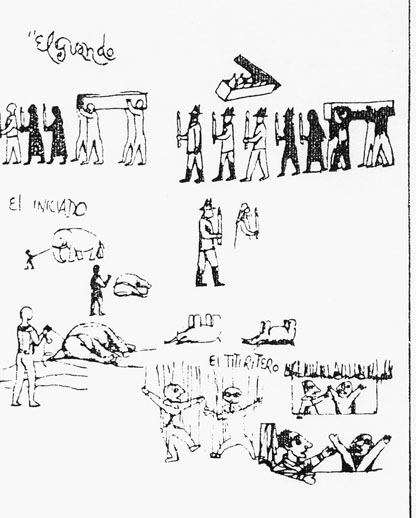 "El Guando
El INICIADO
El TITIRITERO